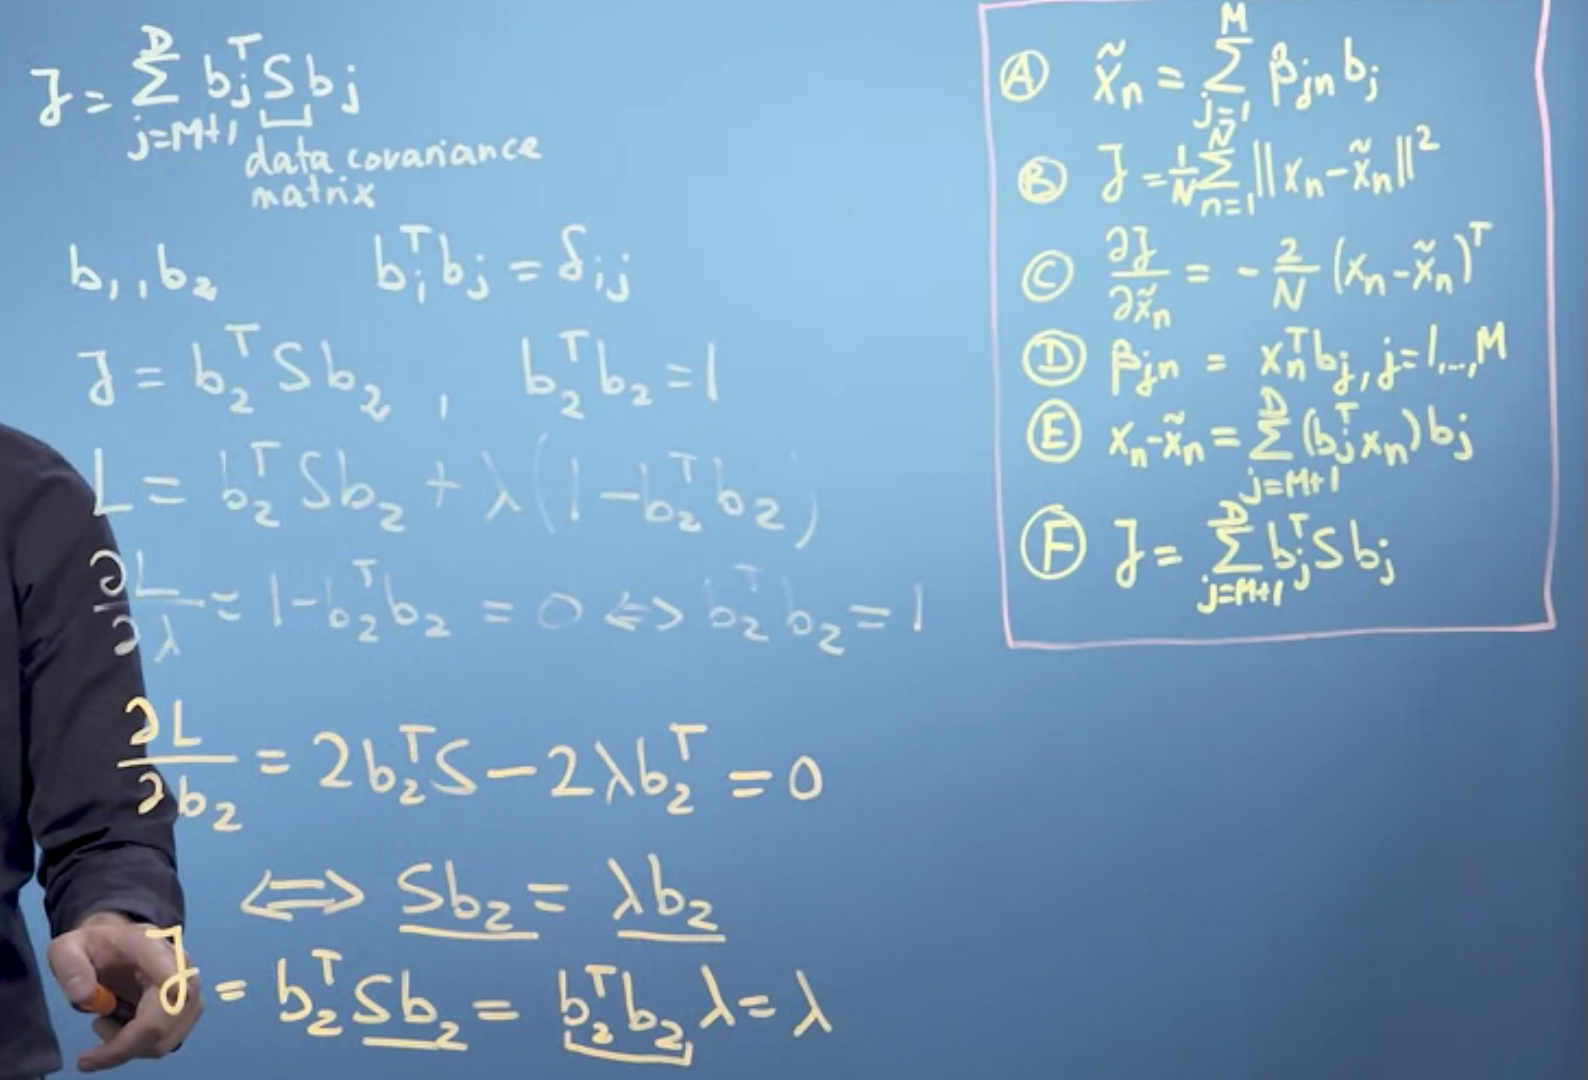 J = Σ_{j=M+1}^{D} b_j^T S b_j
data covariance
matrix
b_1, b_2    b_i^T b_j = δ_{ij}
J = b_2^T S b_2 , b_2^T b_2 = 1
L = b_2^T S b_2 + λ(1 - b_2^T b_2)
∂L/∂λ = 1 - b_2^T b_2 = 0 ⇔ b_2^T b_2 = 1
∂L/∂b_2 = 2b_2^T S - 2λb_2^T = 0
⇔ Sb_2 = λb_2
J = b_2^T S b_2 = b_2^T b_2 λ = λ
Ⓐ x̃_n = Σ_{j=1}^{M} β_{jn} b_j
Ⓑ J = 1/N Σ_{n=1}^{N} ||x_n - x̃_n||^2
Ⓒ ∂J/∂x̃_n = - 2/N (x_n - x̃_n)^T
Ⓓ β_{jn} = x_n^T b_j, j=1,...,M
Ⓔ x_n - x̃_n = Σ_{j=M+1}^{D} (b_j^T x_n) b_j
Ⓕ J = Σ_{j=M+1}^{D} b_j^T S b_j